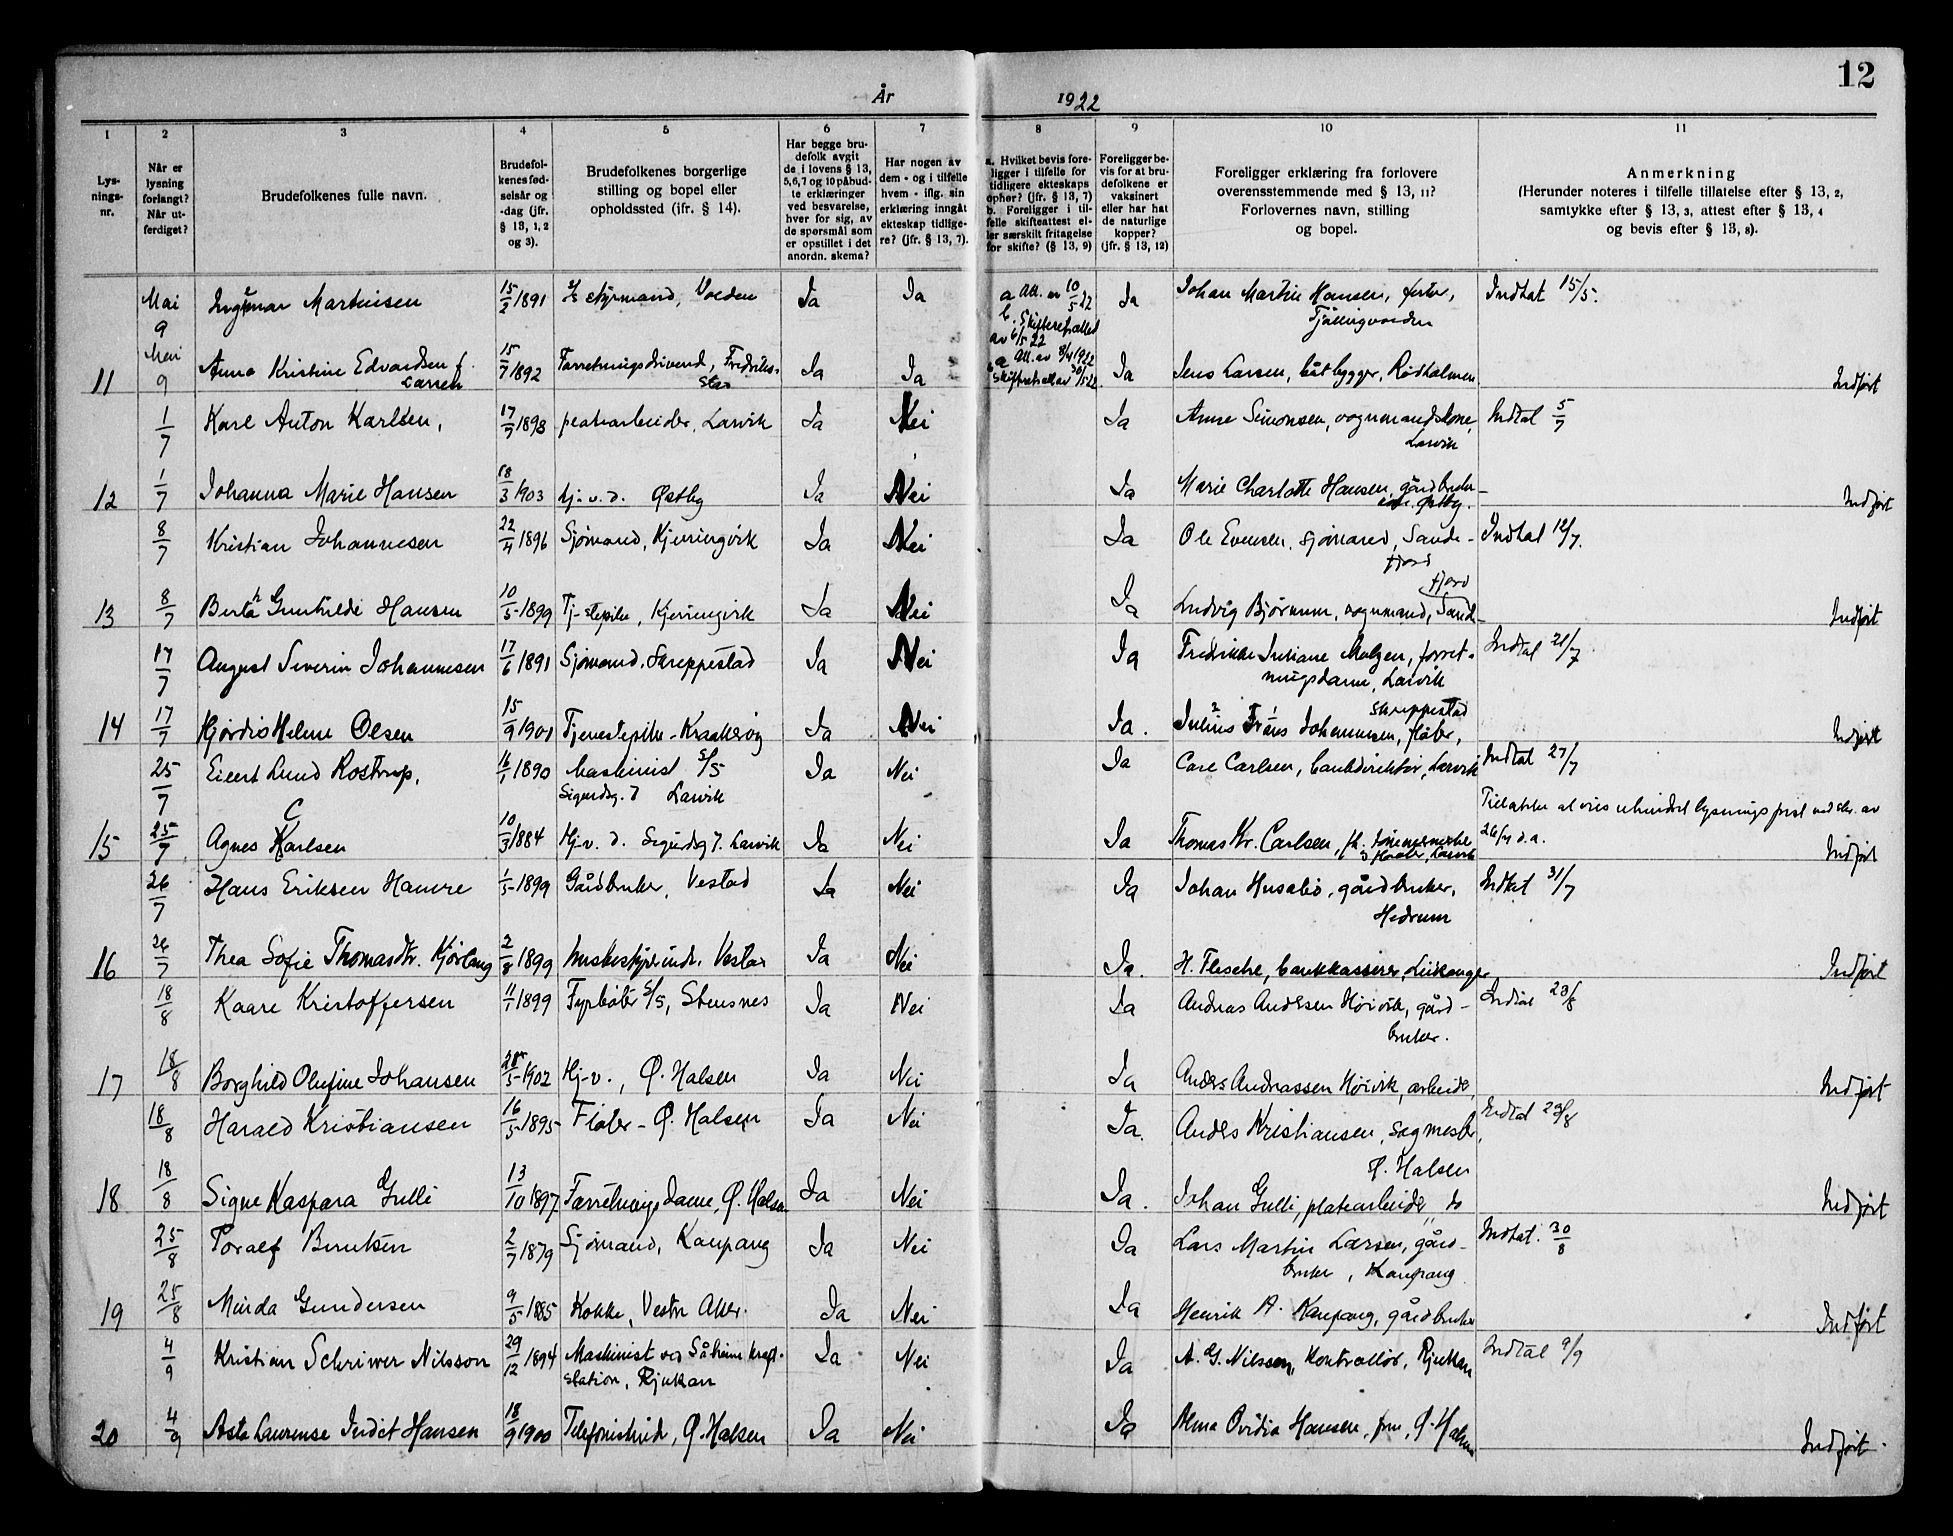 12
År 1922
1 2 3 4 5 6 7 8 9 10 11
Lys-
nings-
nr.
Når er
lysning
forlangt?
Når ut-
ferdiget?
Brudefolkenes fulle navn.
Brudefol-
kenes fød-
selsår og
-dag (jfr.
§ 13, 1, 2
og 3).
Brudefolkenes borgerlige
stilling og bopel eller
opholdssted (ifr. § 14).
Har begge bru-
defolk avgit
de i lovens § 13,
5,6,7 og 10 påbud-
te erklæringer
ved besvarelse,
hver for sig, av
de spørsmål som
er opstillet i det
anordn. skema?
Har nogen av
dem - og i tilfelle
hvem - iflg. sin
erklæring inngåt
ekteskap tidlige-
re? (jfr. § 13, 7).
a. Hvilket bevis fore-
ligger i tilfelle for
tidligere ekteskaps
ophør? (jfr. § 13, 7)
b. Foreligger i til-
felle skifteattest el-
ler særskilt fritagelse
for skifte? (§ 13, 9)
Foreligger be-
vis for at bru-
defolkene er
vaksinert
eller har hat
de naturlige
kopper?
(jfr. § 13, 12)
Foreligger erklæring fra forlovere
overensstemmende med § 13, 11?
Forlovernes navn, stilling
og bopel.
Anmerkning
(Herunder noteres i tilfelle tillatelse efter § 13, 2,
samtykke efter § 13, 3, attest efter § 13, 4
og bevis efter § 13, 8).
Mai 9 Ingmar Martinsen 15/2 1891 styrmand, Ja Ja a Att. av 10/5 22 Ja Johan Martin Hansen, Indtat 15/5.
Tjøllingvolden
11 Mai 9 Anna Kristine Edvardsen f. 15/7 1892 Forretningsdrivende, Fredriks- Ja Ja Ja Jens Larsen, båtbygger, Rødholmen Indført
Larsen stad
1/7 Karl Anton Karlsen, 17/7 1898 platearbeider, Larvik Ja Nei Ja Anne Simonsen, vognmandskone, Indtat 5/7
Larvik
12 1/7 Johanna Marie Hansen 18/3 1903 hj.v.d. Østby Ja Nei Ja Marie Charlotte Hansen, Indført
Østby.
8/7 Kristian Johannesen 22/4 1896 Sjømand, Kjerringvik Ja Nei Ja Ole Evensen, sjømand, Sande- Indtat 12/7.
fjord
13 8/7 Berta Gunhilde Hansen 10/5 1899 Tj- Kjerringvik Ja Nei Ja Ludvig Bjørnum, vognmand, Sande- Indført
fjord
17/7 August Severin Johannesen 17/6 1891 Sjømand, Skreppestad Ja Nei Ja Fredrikke Juliane Malzen, forret- Indtat 21/7
ningsdame, Larvik
14 17/7 Hjørdis Helene Olsen 15/9 1901 Tjenestepike. Kraakerøy Ja Nei Ja. Julius Frans Johannesen, fløter, Indført
Skreppestad
25/7 Eilert Lund Rostrup, 16/1 1890 Maskinist S/S Ja Nei Ja Carl Carlsen, bankdirektør, Larvik Indtat 27/7
Sigurdsg. 7 Larvik
15 25/7 Agnes Carlsen 10/3 1884 Hj-v. d. Sigurdsg 7. Larvik Ja Nei Ja Thomas Kr. Carlsen, fh. tømmermerker Indført
Larvik 26/7 d.a.
26/7 Hans Eriksen Hamre 1/5 1899 Gårdbruker, Vestad Ja Nei Ja Johan Husabø, gårdbruker, Indtat 31/7
Hedrum
16 26/7 Thea Sofie Thomasdtr. Kjørlaug 2/8 1899 Ja Nei Ja. H. Flesche, bankkasserer, Leikanger Indført
18/8 Kaare Kristoffersen 11/1 1899 Fyrbøter S/S, Stensnes Ja Nei Ja Andreas Andersen Høivik, gård- Indtat 23/8
bruker.
17 18/8 Borghild Olufine Johansen 28/5 1902 Hj-v., Ø. Halsen Ja Nei Ja Anders Andreassen Høivik, arbeider, Indført
18/8 Harald Kristiansen 16/5 1895 Fløter - Ø. Halsen Ja Nei Ja. Anders Kristiansen, sagmester, Indtat 29/8
Ø. Halsen
18 18/8 Signe Kaspara Gulli 13/10 1897 Forretnings dame, Ø. Halsen Ja Nei Ja. Johan Gulli, platearbeider do Indført
25/8 Toralf Berntsen 2/7 1879 Sjømand, Kaupang Ja Nei Ja Lars Martin Larsen, gård- Indtat. 30/8
bruker, Kaupang
19 25/8 Minda Gundersen 9/5 1885 Kokke, Vestre Aker. Ja Nei Ja Henrik A. Kaupang, gårdbruker Indført
4/9 Kristian Schriwer Nilsson 29/12 1894 Maskinist ved Såheim kraft- Ja Nei Ja A. G. Nilsson, Kontrollør, Rjukan Indtat 9/9
station, Rjukan
20 4/9 Asta Laurense Indit Hansen 18/9 1900 Telefonistinde, Ø. Halsen Ja Nei Ja Alma Ovidia Hansen, fru, Ø. Halsen Indført.